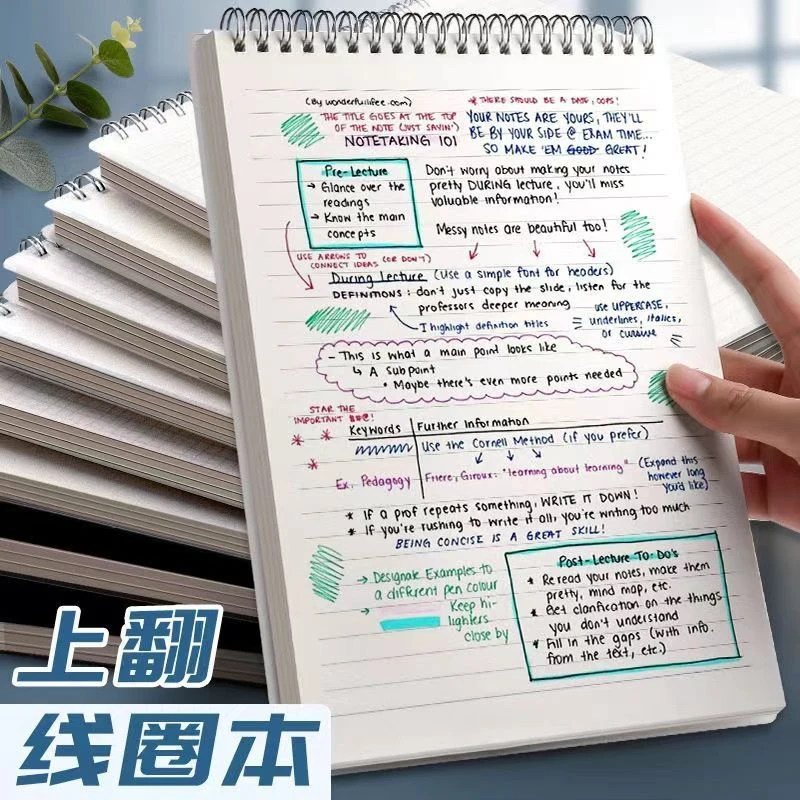 (By wonderfullifee.com)
* THERE SHOULD BE A DATE, OOPS!
THE TITLE GOES AT THE TOP
OF THE NOTE (JUST SAYIN')
NOTETAKING 101
YOUR NOTES ARE YOURS, THEY'LL
BE BY YOUR SIDE @ EXAM TIME...
SO MAKE 'EM GOOD GREAT!
Pre-Lecture
→ Glance over the
readings
→ Know the main
concepts
Don't worry about making your notes
pretty DURING lecture, you'll miss
valuable information!
Messy notes are beautiful too!
USE ARROWS TO
CONNECT IDEAS (OR DON'T)
During Lecture (Use a simple font for headers)
DEFINITIONS: don't just copy the slide, listen for the
professors deeper meaning
I highlight definition titles
use UPPERCASE,
underlines, italics,
or cursive
- This is what a main point looks like
↳ A Subpoint
• Maybe there's even more points needed
STAR THE
IMPORTANT !
Keywords
Further Information
Use the Cornell Method (if you prefer)
Ex. Pedagogy
Friere, Giroux: "learning about learning"
(Expand this
however long
you'd like)
* If a prof repeats something, WRITE IT DOWN!
* If you're rushing to write it all, you're writing too much
BEING CONCISE IS A GREAT SKILL!
→ Designate Examples to
a different pen colour
→ Keep hi-
lighters
close by
Post-Lecture To-Do's
* Reread your notes, make them
pretty, mind map, etc.
* Get clarification on the things
you don't understand
* Fill in the gaps (with info.
from the text, etc.)
上翻
线圈本